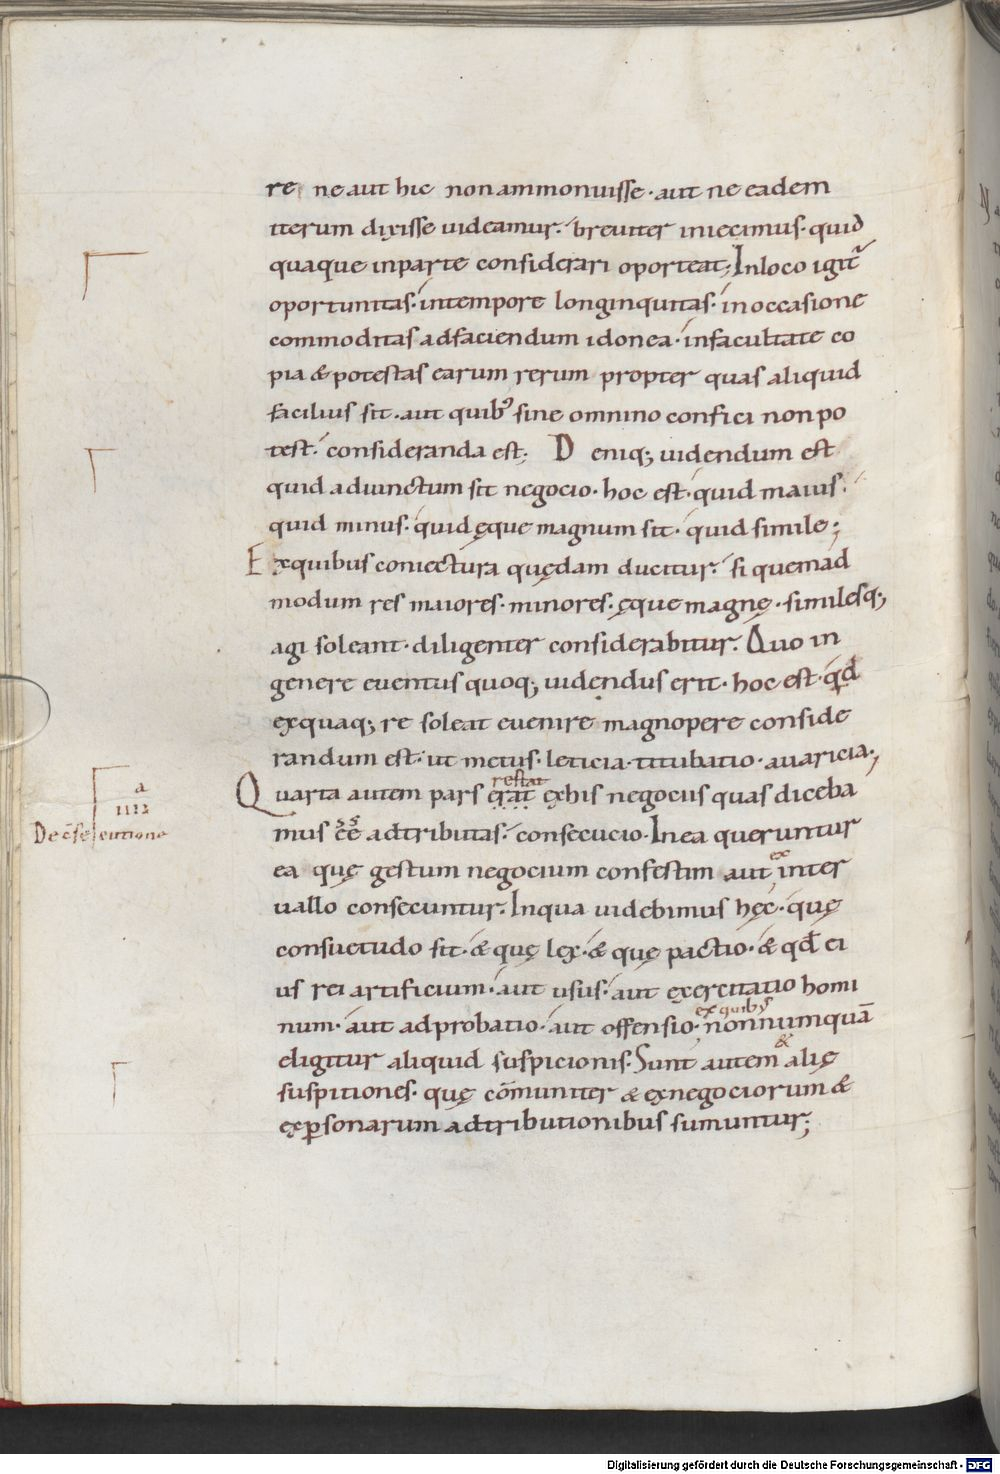 re ne aut hic non ammonuisse · aut ne eadem
iterum dixisse uideamur · breuiter iniecimus · quid
quaque inparte considerari oporteat; Inloco igit̄
oportunitas · intempore longinquitas · in occasione
commoditas adfaciendum idonea · infacultate co
pia & potestas earum rerum propter quas aliquid
facilius sit · aut quib; sine omnino confici non po
test · consideranda est; Deniq; uidendum est
quid adiunctum sit negocio · hoc est · quid maius ·
quid minus · quid ęque magnum sit · quid simile;
Exquibus coniectura quędam ducitur · si quemad
modum res maiores · minores · ęque magnę · similesq;
agi soleant · diligenter considerabitur. Quo in
genere euentus quoq; uidendus erit · hoc est · qd̄
exquaq; re soleat euenire magnopere conside
randum est · ut metus · leticia · titubatio · auaricia;
restat
Quarta autem pars erat exhis negociis quas diceba
a
IIII
mus eē adtributas · consecucio · Inea queruntur
De cōsecutione
ex
ea quę gestum negocium confestim aut inter
uallo consecuntur. Inqua uidebimus hęc · quę
consuetudo sit · & quę lex · & quę pactio · & qd̄ ei
us rei artificium · aut usus · aut exercitatio homi
ex quib;
num · aut adprobatio · aut offensio · nonnumquā
&
eligitur aliquid suspicionis. Sunt autem alię
suspitiones · quę cōmuniter & exnegociorum &
exꝑsonarum adtributionibus sumuntur;
Digitalisierung gefördert durch die Deutsche Forschungsgemeinschaft - DFG